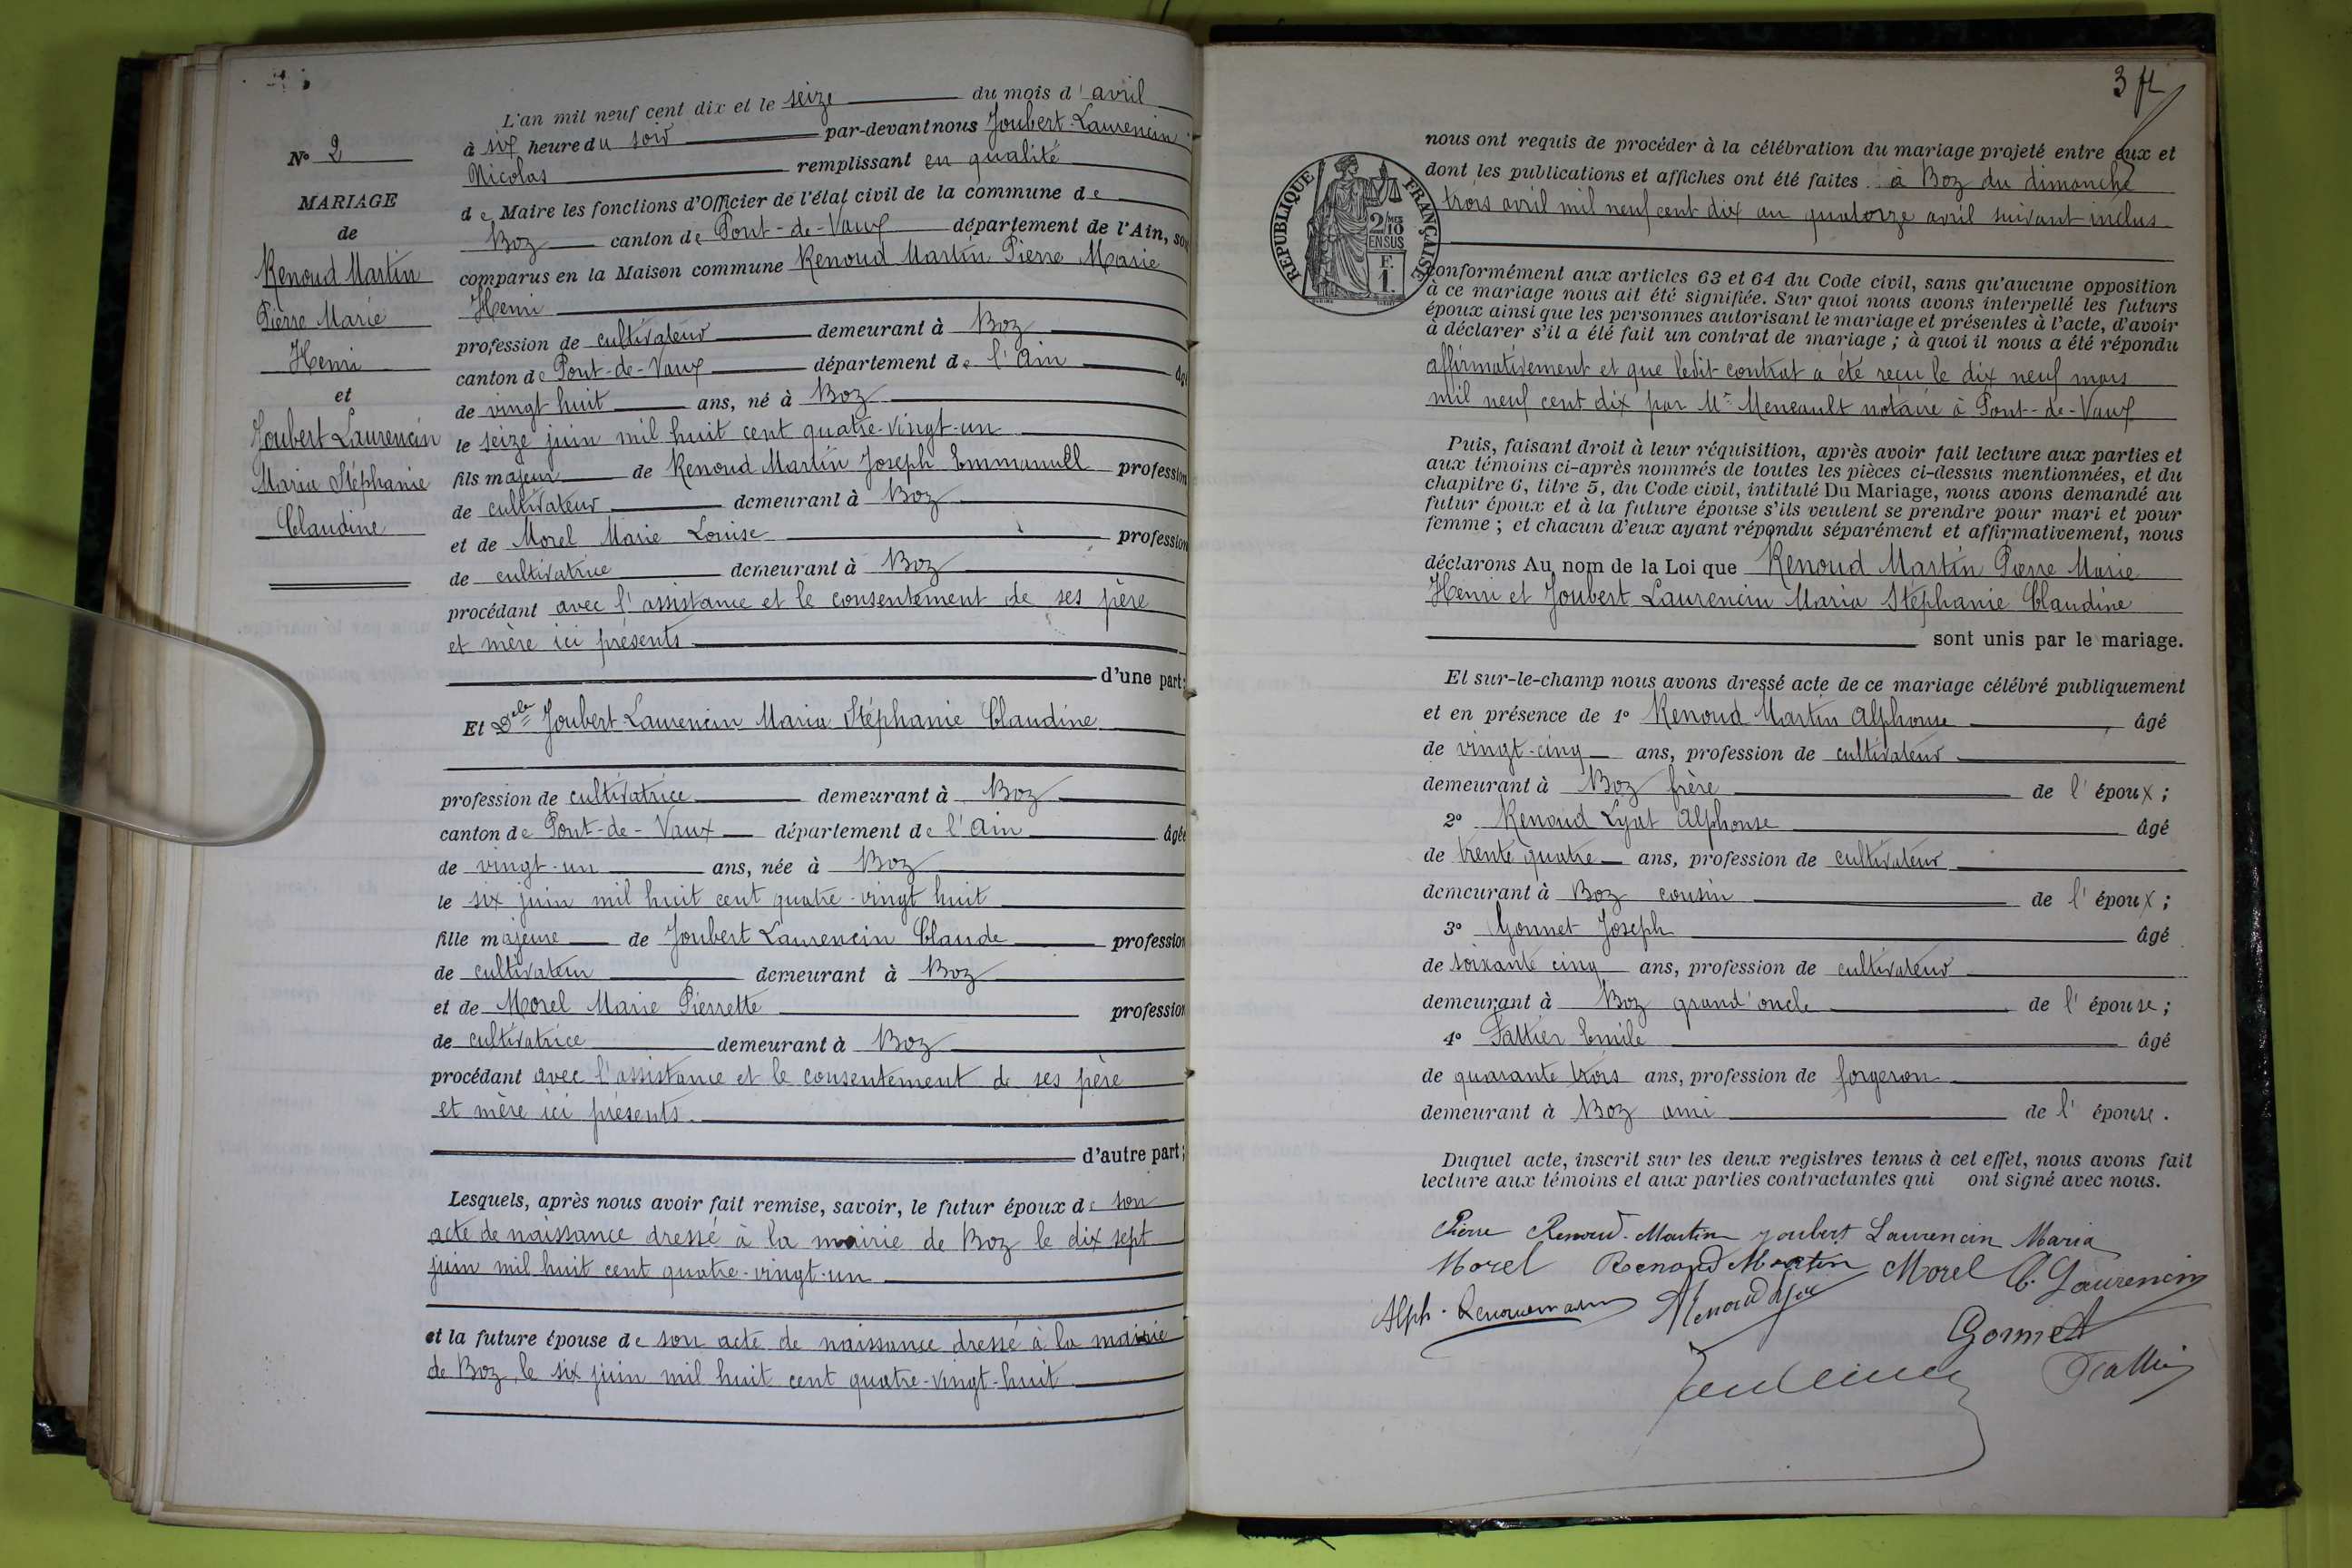 N° 2
MARIAGE
de
Renoud Martin
Pierre Marie
Henri
et
Joubert Laurencin
Maria Stéphanie
Claudine
L'an mil neuf cent dix et le seize du mois d'avril
à six heure du soir par-devant nous Joubert-Laurencin
Nicolas remplissant en qualité
de Maire les fonctions d'Officier de l'état civil de la commune de
Boz canton de Pont-de-Vaux département de l'Ain, son
comparus en la Maison commune Renoud Martin Pierre Marie
Henri
profession de cultivateur demeurant à Boz
canton de Pont-de-Vaux département de l'Ain âgé
de vingt huit ans, né à Boz
le seize juin mil huit cent quatre-vingt-un
fils majeur de Renoud Martin Joseph Emmanuel profession
de cultivateur demeurant à Boz
et de Morel Marie Louise profession
de cultivatrice demeurant à Boz
procédant avec l'assistance et le consentement de ses père
et mère ici présents
d'une part;
Et Delle Joubert Laurencin Maria Stéphanie Claudine
profession de cultivatrice demeurant à Boz
canton de Pont-de-Vaux département de l'Ain âgée
de vingt-un ans, née à Boz
le six juin mil huit cent quatre-vingt huit
fille majeure de Joubert Laurencin Claude profession
de cultivateur demeurant à Boz
et de Morel Marie Pierrette profession
de cultivatrice demeurant à Boz
procédant avec l'assistance et le consentement de ses père
et mère ici présents.
d'autre part;
Lesquels, après nous avoir fait remise, savoir, le futur époux de son
acte de naissance dressé à la mairie de Boz le dix sept
juin mil huit cent quatre-vingt-un
et la future épouse de son acte de naissance dressé à la mairie
de Boz, le six juin mil huit cent quatre-vingt-huit
3
RÉPUBLIQUE FRANÇAISE
2/10 MES
EN SUS
F.
1.
nous ont requis de procéder à la célébration du mariage projeté entre eux et
dont les publications et affiches ont été faites à Boz du dimanche
trois avril mil neuf cent dix au quatorze avril suivant inclus
conformément aux articles 63 et 64 du Code civil, sans qu'aucune opposition
à ce mariage nous ait été signifiée. Sur quoi nous avons interpellé les futurs
époux ainsi que les personnes autorisant le mariage et présentes à l'acte, d'avoir
à déclarer s'il a été fait un contrat de mariage; à quoi il nous a été répondu
affirmativement et que ledit contrat a été reçu le dix neuf mars
mil neuf cent dix par Me Meneault notaire à Pont-de-Vaux
Puis, faisant droit à leur réquisition, après avoir fait lecture aux parties et
aux témoins ci-après nommés de toutes les pièces ci-dessus mentionnées, et du
chapitre 6, titre 5, du Code civil, intitulé Du Mariage, nous avons demandé au
futur époux et à la future épouse s'ils veulent se prendre pour mari et pour
femme; et chacun d'eux ayant répondu séparément et affirmativement, nous
déclarons Au nom de la Loi que Renoud Martin Pierre Marie
Henri et Joubert Laurencin Maria Stéphanie Claudine
sont unis par le mariage.
Et sur-le-champ nous avons dressé acte de ce mariage célébré publiquement
et en présence de 1° Renoud Martin Alphonse âgé
de vingt-cinq ans, profession de cultivateur
demeurant à Boz frère de l'époux;
2° Renoud Lyat Alphonse âgé
de trente quatre ans, profession de cultivateur
demeurant à Boz cousin de l'époux;
3° Gonnet Joseph âgé
de soixante cinq ans, profession de cultivateur
demeurant à Boz grand'oncle de l'épouse;
4° Fattier Emile âgé
de quarante trois ans, profession de forgeron
demeurant à Boz ami de l'épouse.
Duquel acte, inscrit sur les deux registres tenus à cet effet, nous avons fait
lecture aux témoins et aux parties contractantes qui ont signé avec nous.
Pierre Renoud-Martin Joubert Laurencin Maria
Morel Renoud Martin Morel C. Laurencin
Alph.
Gonnet